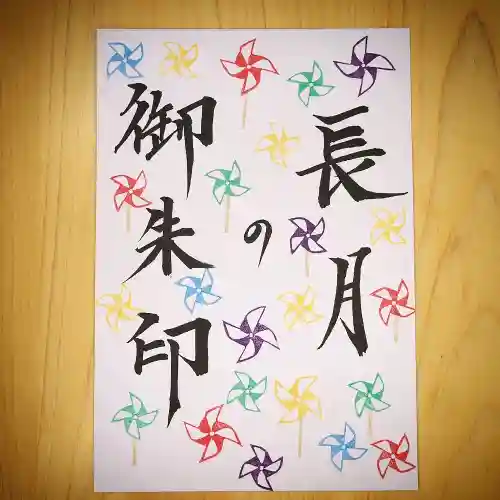 長月
の
御朱印